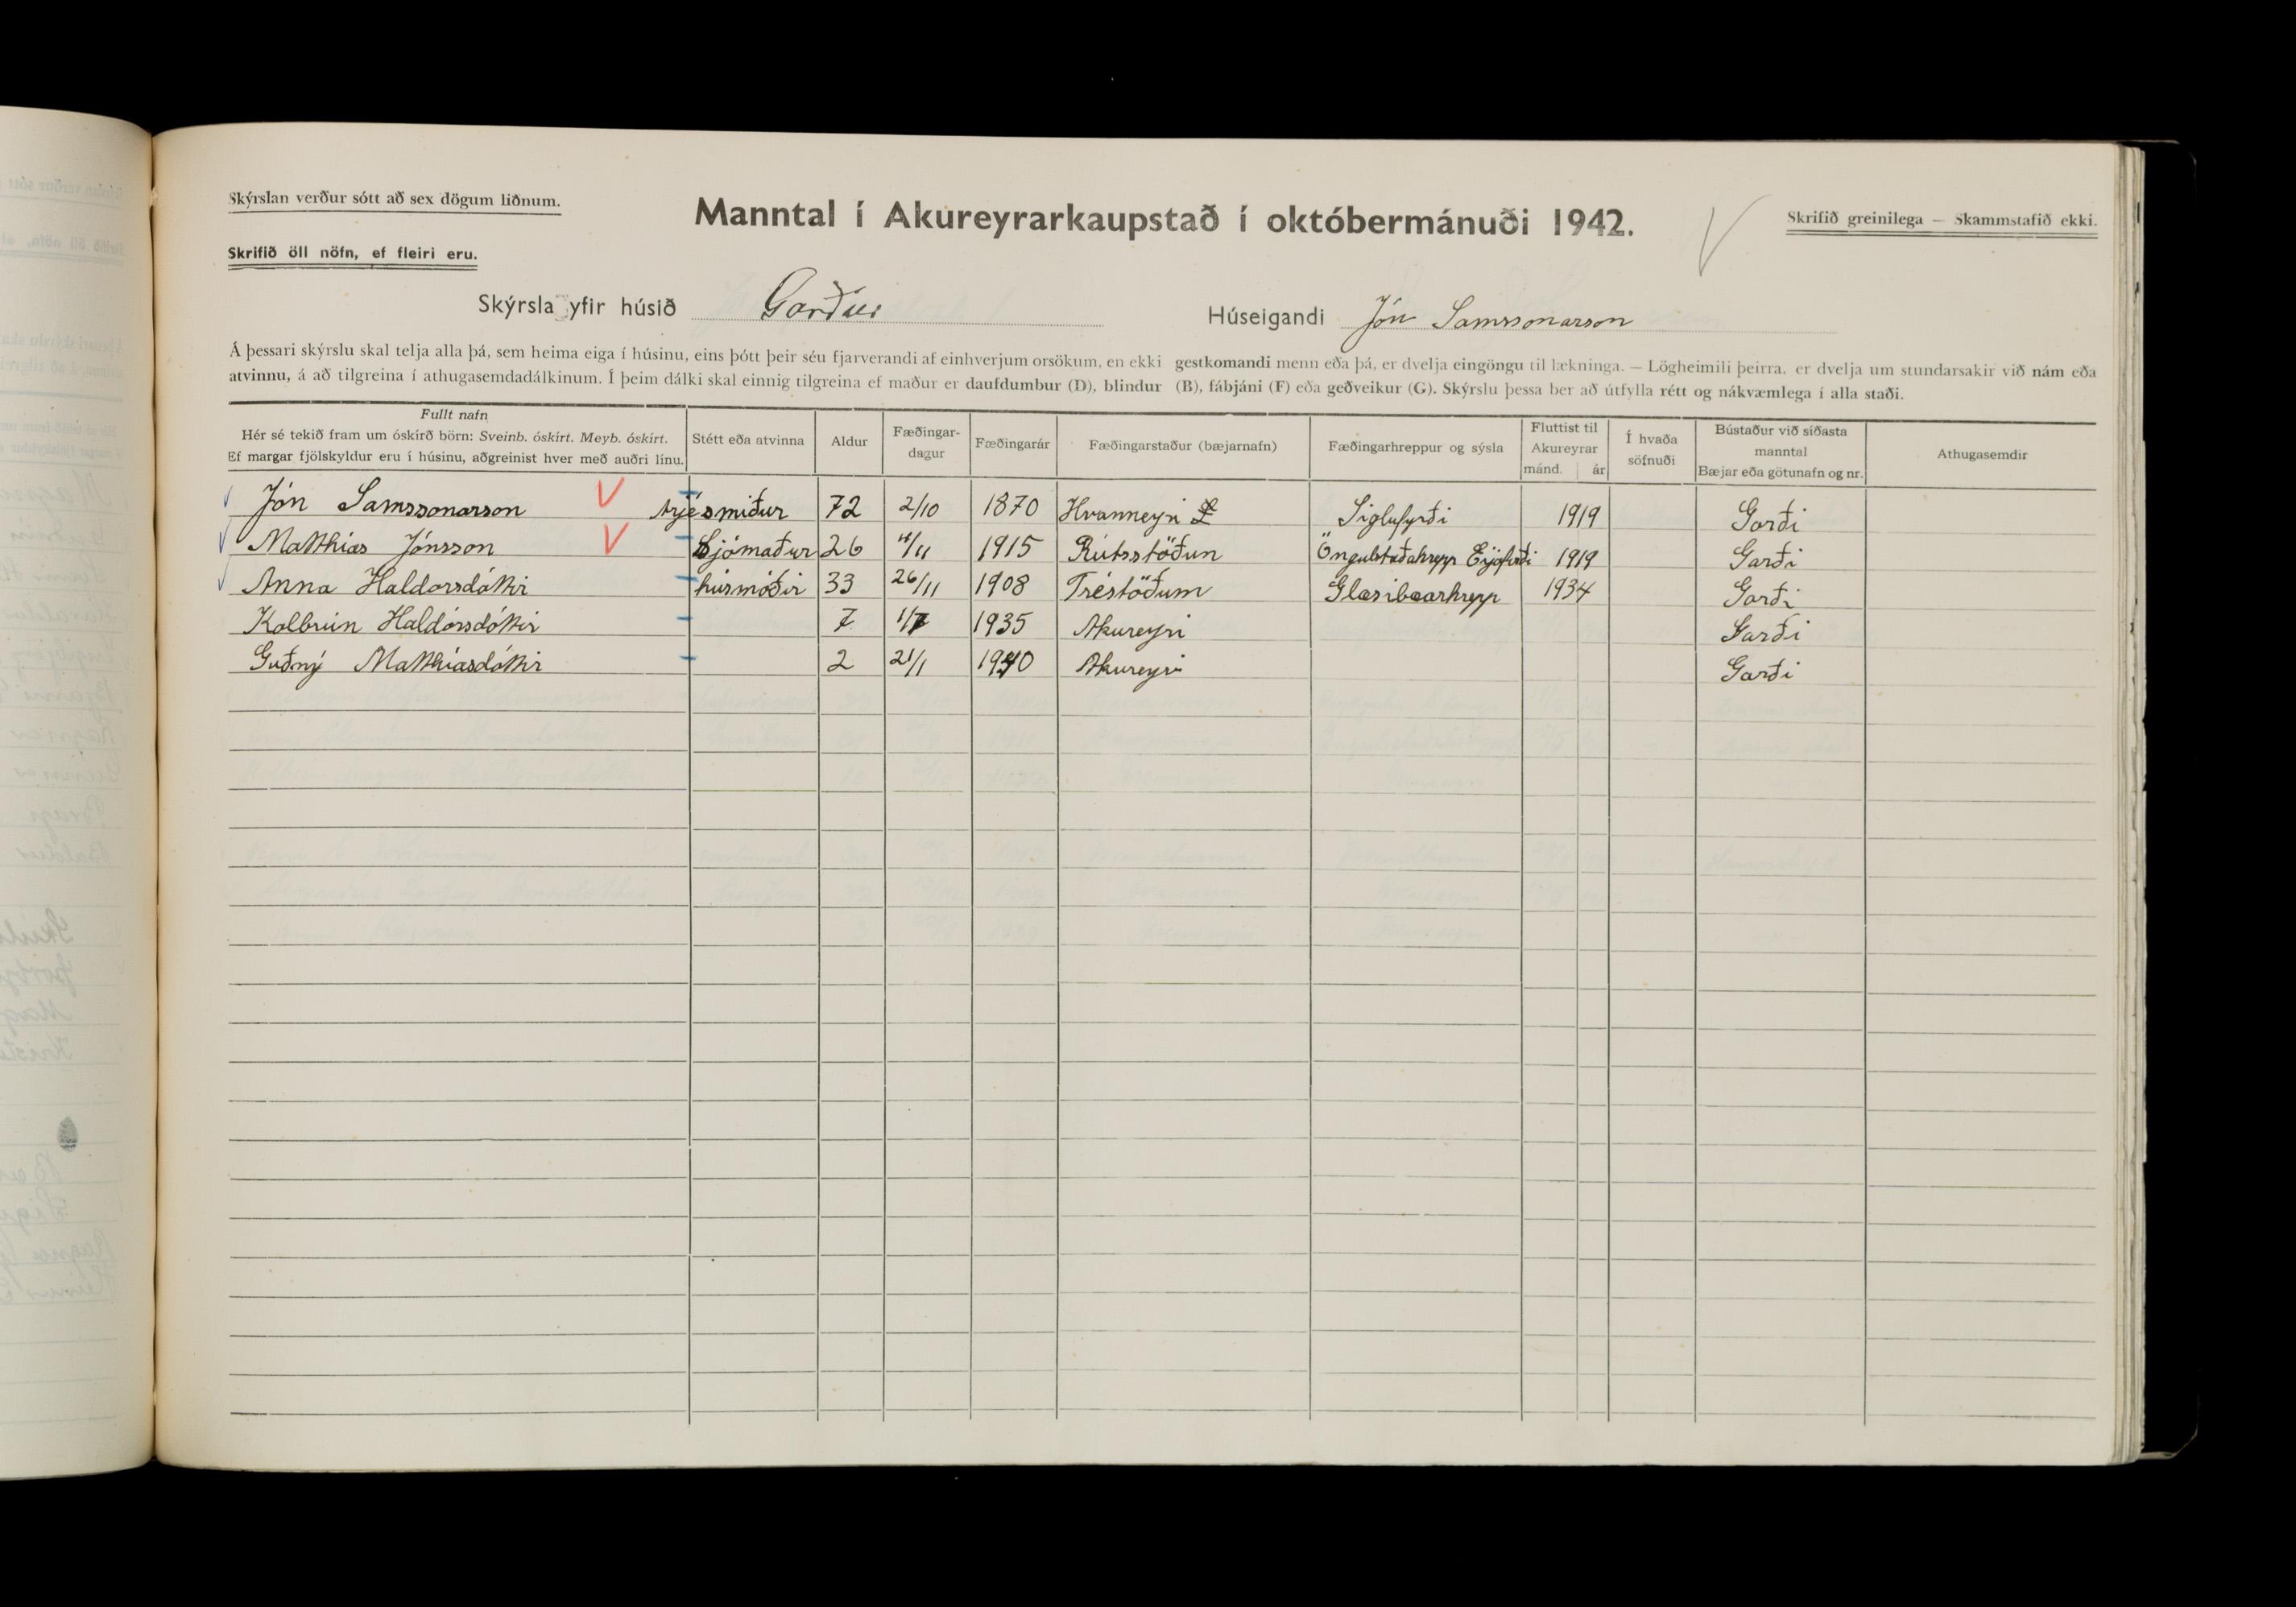 Skýrslan verður sótt að sex dögum liðnum.
Manntal í Akureyrarkaupstað í októbermánuði 1942.
Skrifið greinilega — Skammstafið ekki.
Skrifið öll nöfn, ef fleiri eru.
Skýrsla yfir húsið Garður Húseigandi Jón Samssonarson
Á þessari skýrslu skal telja alla þá, sem heima eiga í húsinu, eins þótt þeir séu fjarverandi af einhverjum orsökum, en ekki gestkomandi menn eða þá, er dvelja eingöngu til lækninga. — Lögheimili þeirra. er dvelja um stundarsakir við nám eða
atvinnu, á að tilgreina í athugasemdadálkinum. Í þeim dálki skal einnig tilgreina ef maður er daufdumbur (D), blindur (B), fábjáni (F) eða geðveikur (G). Skýrslu þessa ber að útfylla rétt og nákvæmlega í alla staði.
Fullt nafn
Hér sé tekið fram um óskírð börn: Sveinb. óskírt. Meyb. óskírt.
Ef margar fjölskyldur eru í húsinu, aðgreinist hver með auðri línu.
Stétt eða atvinna
Aldur
Fæðingar-
dagur
Fæðingarár
Fæðingarstaður (bæjarnafn)
Fæðingarhreppur og sýsla
Fluttist til
Akureyrar
mánd. ár
Í hvaða
söfnuði
Bústaður við síðasta
manntal
Bæjar eða götunafn og nr.
Athugasemdir
Jón Samssonarson trjésmiður 72 2/10 1870 Hvanneyri Siglufyrði 1919 Garði
Matthías Jónsson Sjómaður 26 /11 1915 Rútsstöðun Öngulstaðahrepp Eyjafirði 1919 Garði
Anna Haldorsdóttir húsmóðir 33 26/11 1908 Tréstöðum Glæsibæarhrepp 1934 Garði
Kolbrún Haldórsdóttir 7 1/7 1935 Akureyri Garði
Guðný Matthíasdóttir 2 21/1 1940 Akureyri Garði